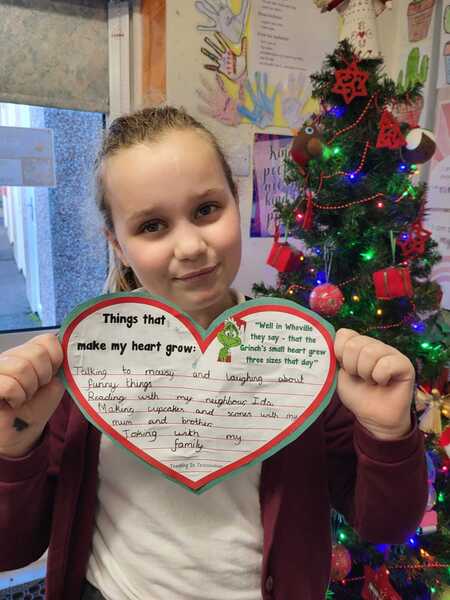 Things that
make my heart grow:
"Well in Whoville
they say - that the
Grinch's small heart grew
three sizes that day"
Talking to maisy and laughing about
funny things
Reading with my neighbour Ida.
Making cupcakes and scones with my
mum and brother
Joking with my
family